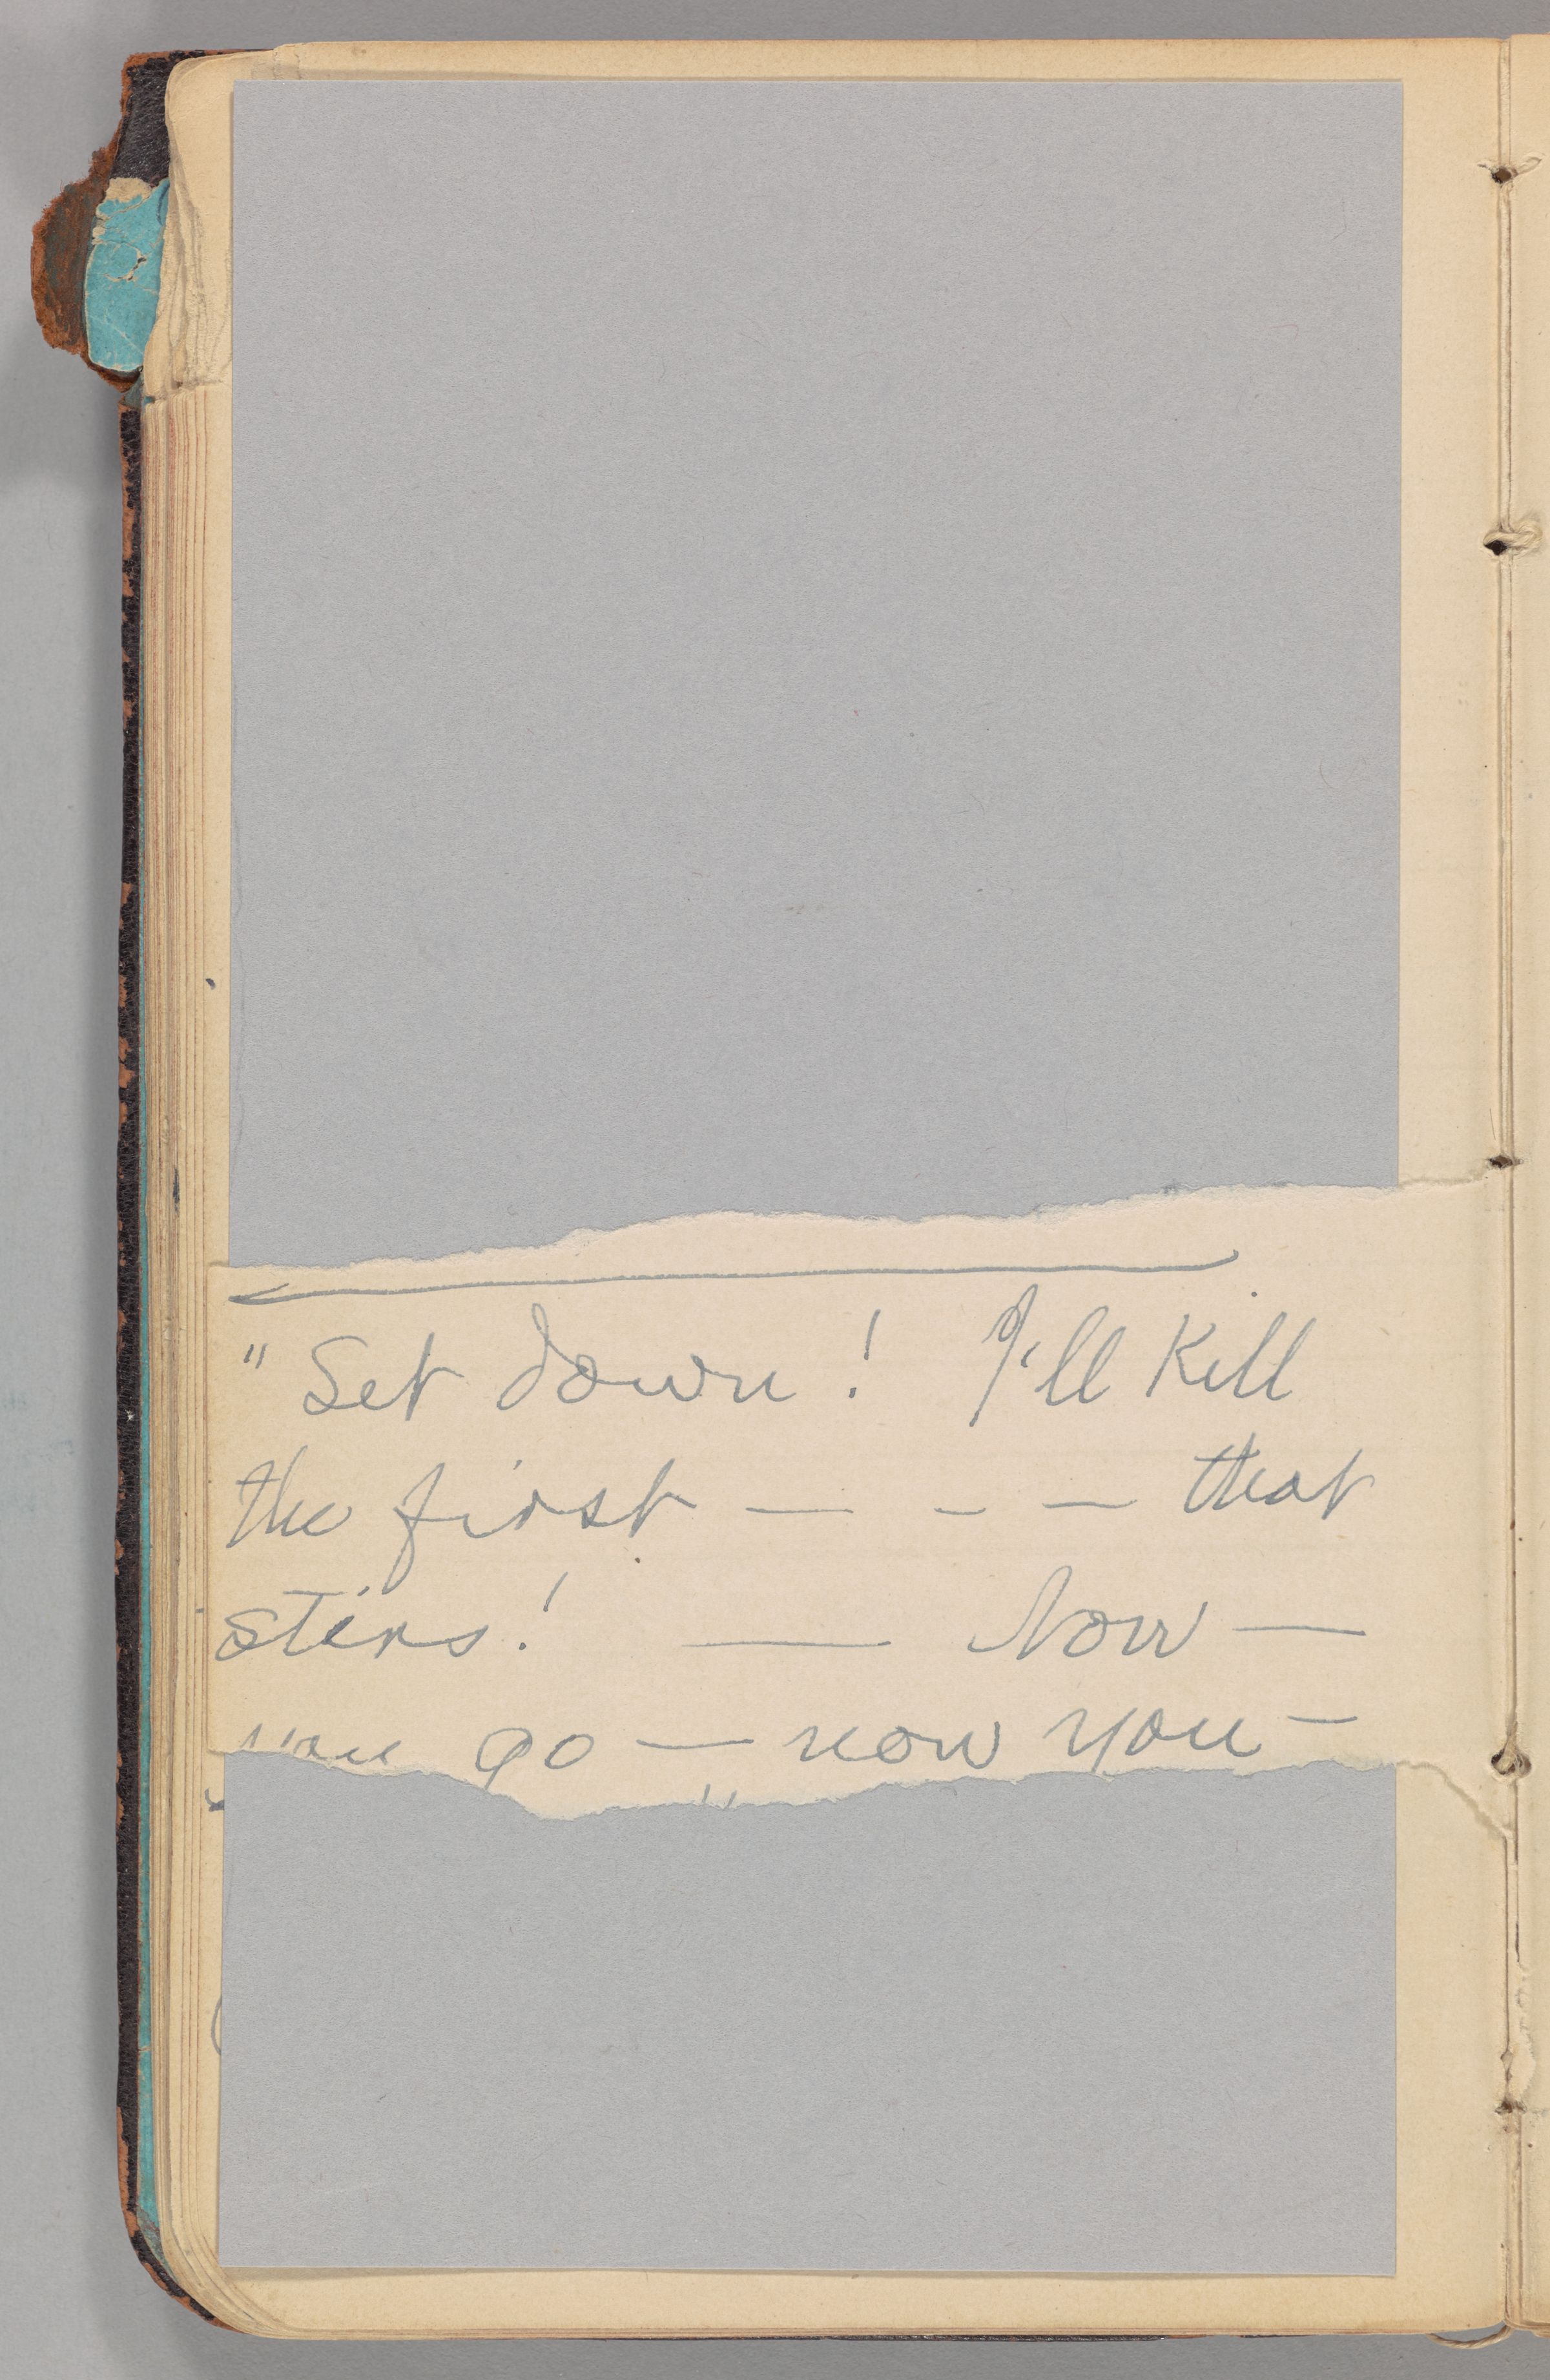 " Set down! I'll kill
the first — - — that
stirs! — Now —
you go — now you —